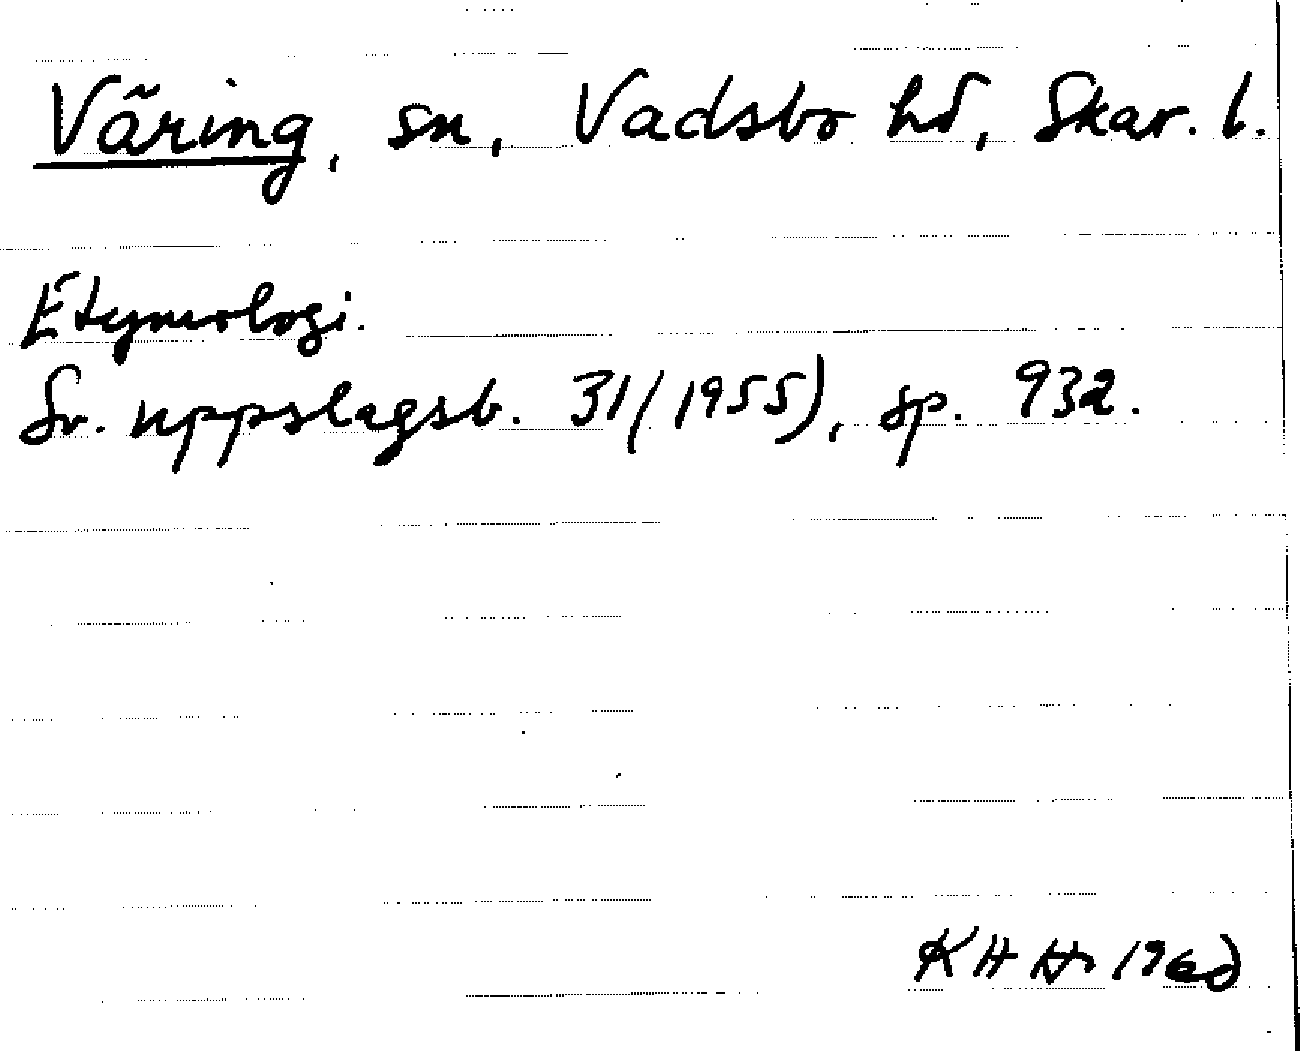 Väring, sn, Vadsbo hd, Skar. l.
Etymologi.
Sv. uppslagsb. 31 (1955), sp. 932.
KHH 1960